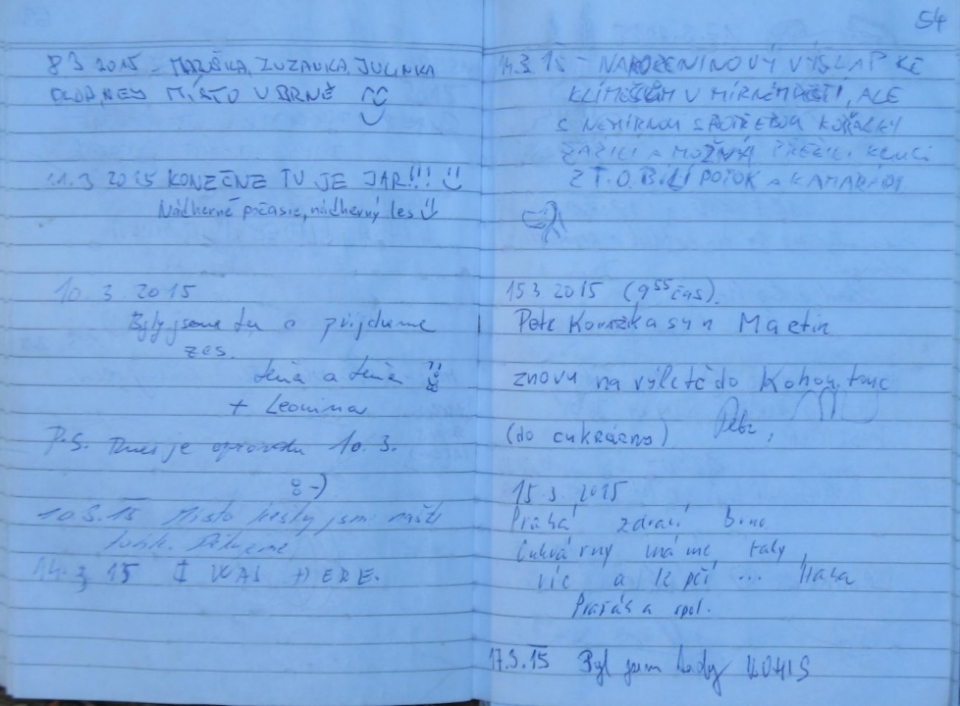 8 3 2015 - MARUŠKA, ZUZANKA, JULINKA
MÍSTO V BRNĚ
11.3 2015 KONEČNE TU JE JAR!!!
Nádherné počasie, nádherný les
10.3 2015
Byly jsme tu a přijdeme
zas.
a
+ Leonina
P.S. Dnes je opravdu 10.3.
8-)
10.3.15 Místo jsme našli
Děkujeme
14.3 15 I WAS HERE.
54
14.3.15 - NAROZENINOVÝ VÝŠLAP KE
KLÍMEŠŮM V MÍRNÉM DEŠTI, ALE
S NEMÍRNOU SPOTŘEBOU KOŘALKY
ZAŽILI A MOŽNÁ PŘEŽILI KLUCI
Z T.O. BÍLÝ POTOK A KAMARÁDI
15.3 2015 (9⁵⁵ čas).
Petr a syn Martin
znovu na výletě do Kohoutovic
(do cukrárna) Petr.
15.3.2015
Praha zdraví Brno
Cukrárny máme taky
víc a lepší ... Haha
Pražás a spol.
17.3.15 Byl jsem tady